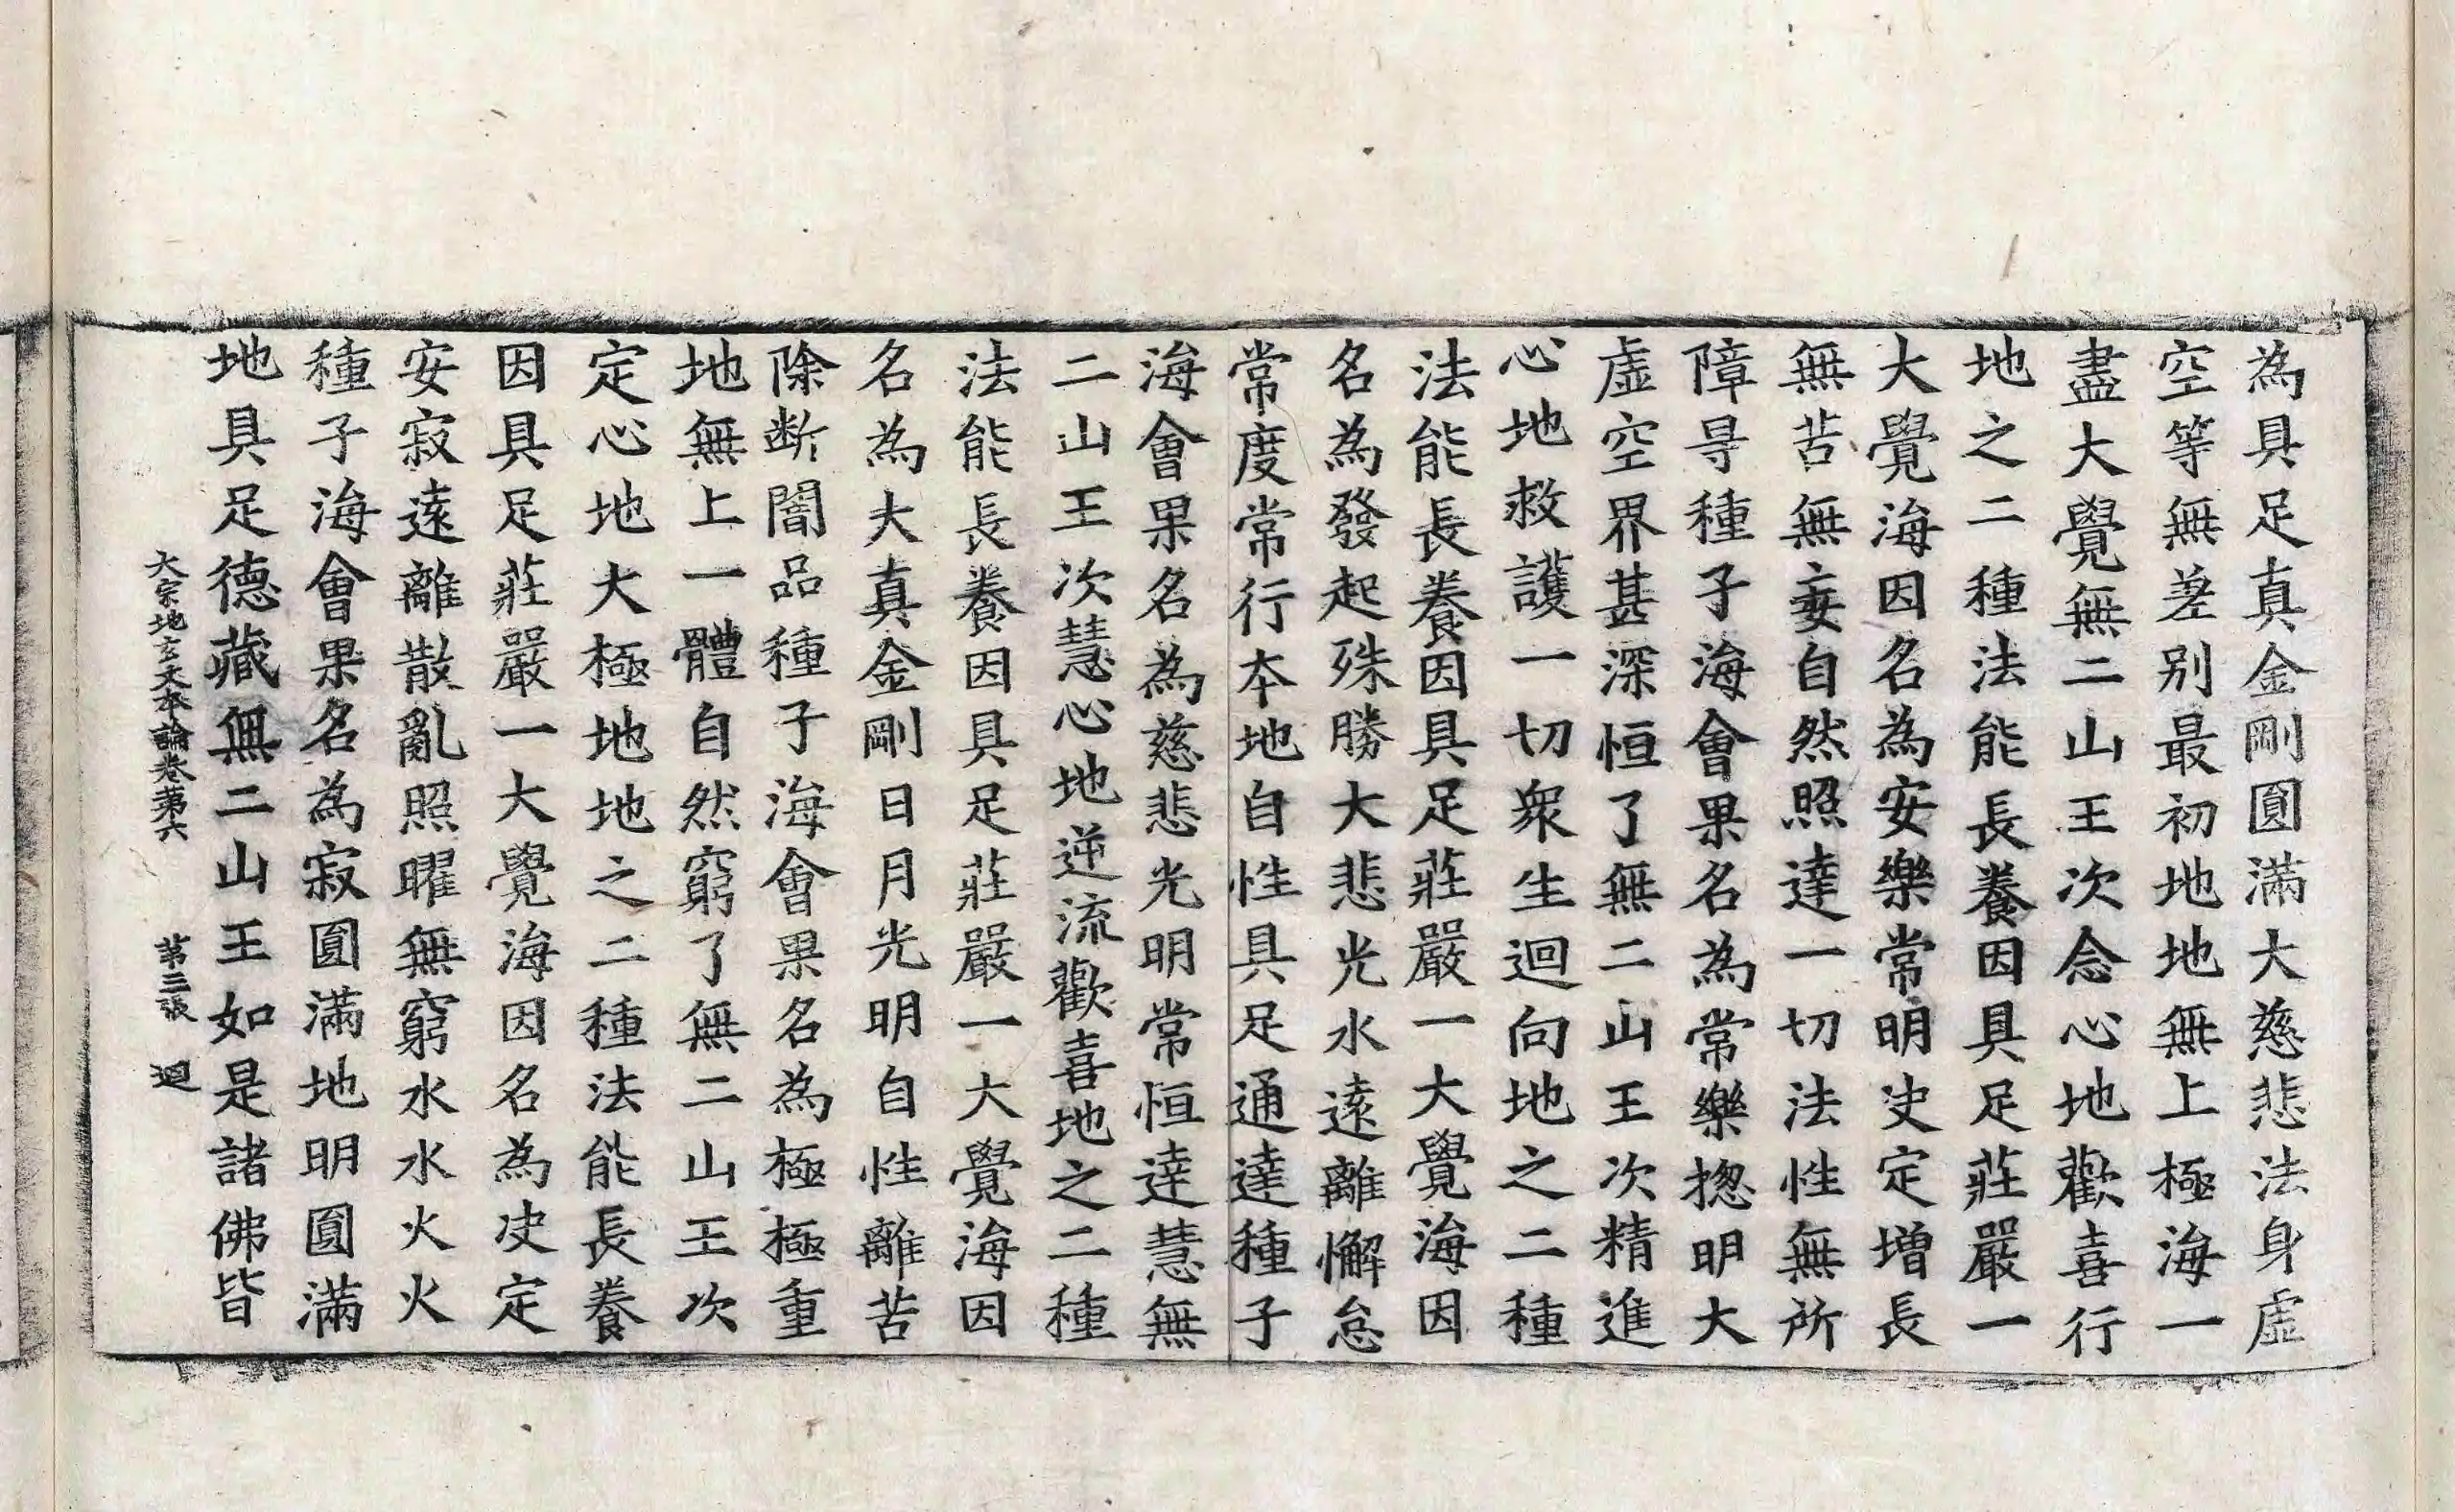 為具足真金剛圓滿大慈悲法身虛
空等無差别最初地地無上極海一
盡大覺無二山王次念心地歡喜行
地之二種法能長養因具足莊嚴一
大覺海因名為安樂常明决定增長
無苦無妄自然照達一切法性無所
障㝵種子海會果名為常樂揔明大
虛空界甚深恒了無二山王次精進
心地救護一切衆生迴向地之二種
法能長養因具足莊嚴一大覺海因
名為發起殊勝大悲光水遠離懈怠
常度常行本地自性具足通達種子
海會果名為慈悲光明常恒達慧無
二山王次慧心地逆流歡喜地之二種
法能長養因具足莊嚴一大覺海因
名為大真金剛日月光明自性離苦
除断闇品種子海會果名為極極重
地無上一體自然窮了無二山王次
定心地大極地地之二種法能長養
因具足莊嚴一大覺海因名為决定
安寂遠離散亂照曜無窮水水火火
種子海會果名為寂圓滿地明圓滿
地具足德藏無二山王如是諸佛皆
大宗地玄文本論卷第六 第三張 迴